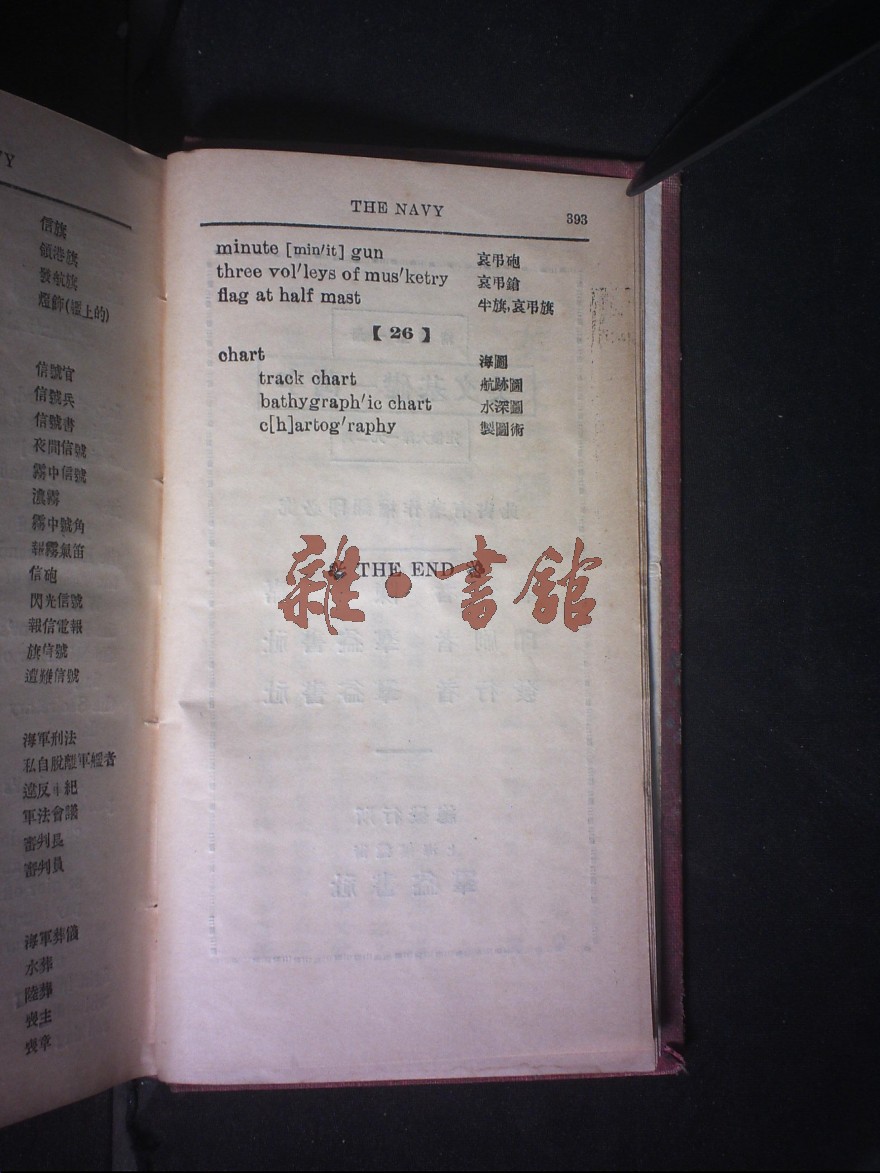 VY
信旗
領港旗
發航旗
燈飾(艦上的)
信號官
信號兵
信號書
夜間信號
霧中信號
濃霧
霧中號角
報霧氣笛
信砲
閃光信號
報信電報
旗信號
遭難信號
海軍刑法
私自脫離軍艦者
違反軍紀
軍法會議
審判長
審判員
海軍葬儀
水葬
陸葬
喪主
喪章
THE NAVY 393
minute [min′it] gun 哀弔砲
three vol′leys of mus′ketry 哀弔鎗
flag at half mast 半旗,哀弔旗
【26】
chart 海圖
track chart 航跡圖
bathygraph′ic chart 水深圖
c[h]artog′raphy 製圖術
THE END
雜·書館
印刷者 羣益書社
發行者 羣益書社
總發行所
羣益書社